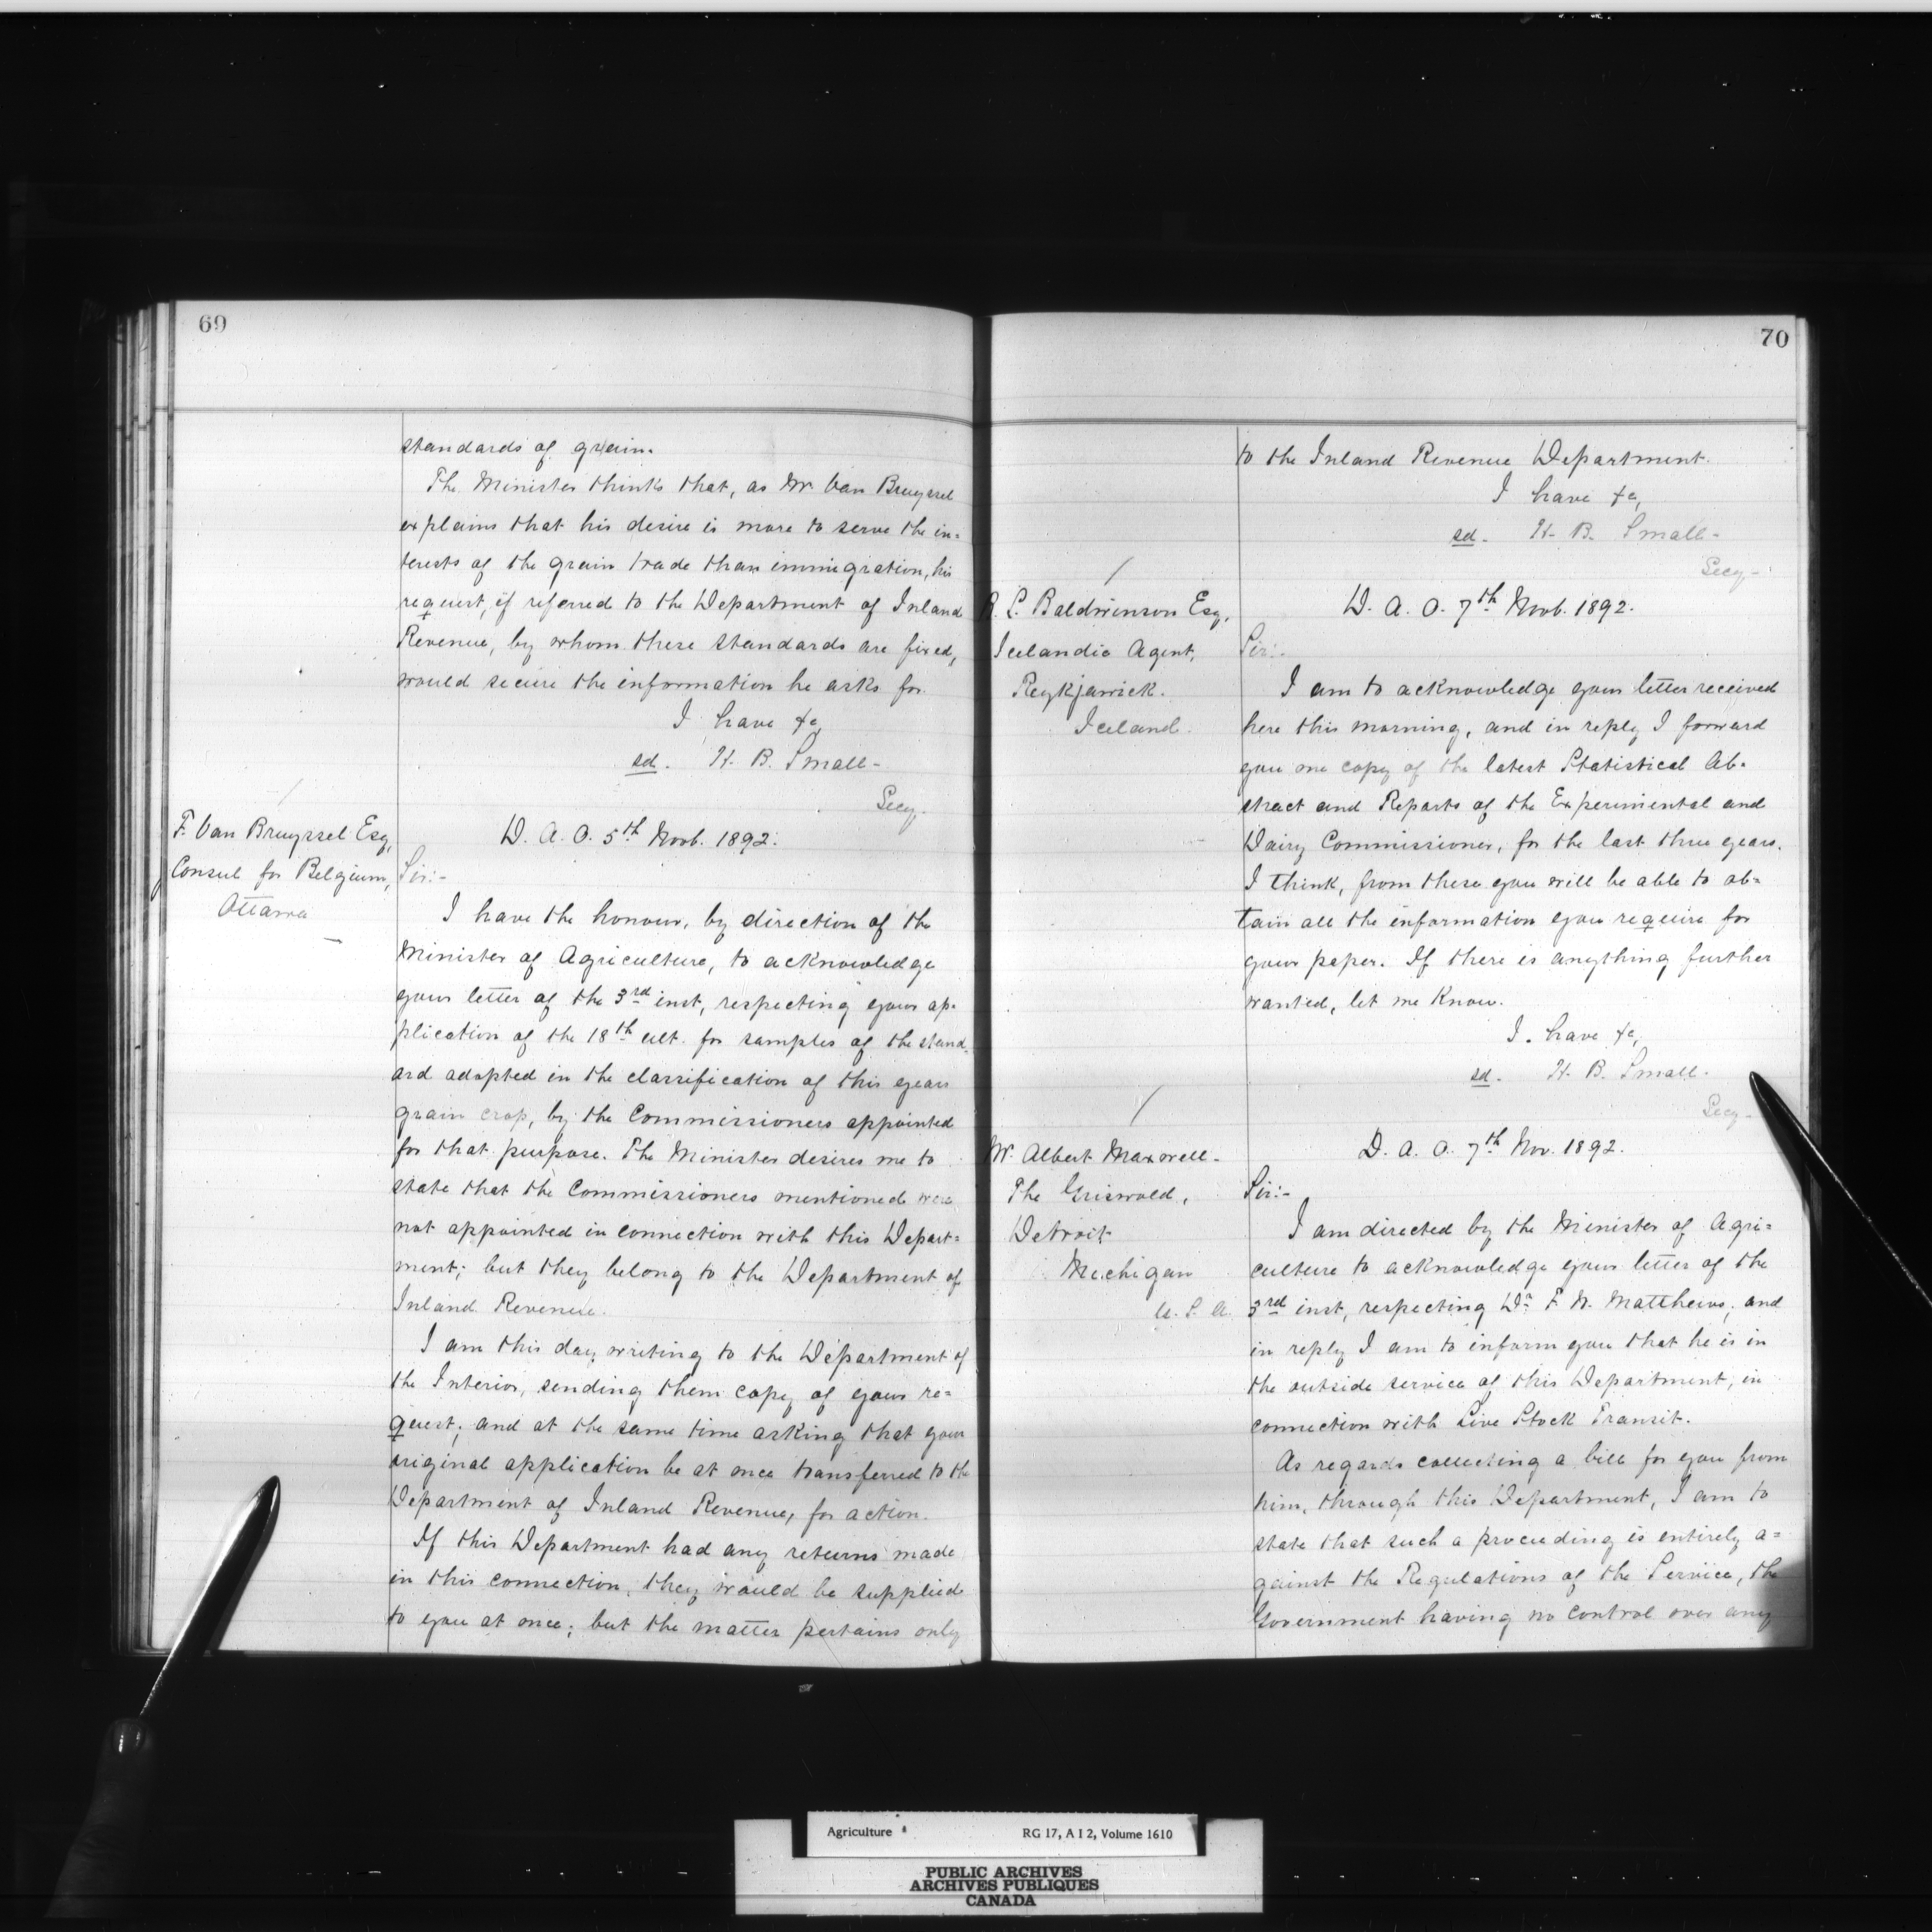 69
standards of grain.
The Minister thinks that, as Mr. Van Bruyssel
explains that his desire is more to serve the in=
terests of the grain trade than immigration, his
request, if referred to the Department of Inland
Revenue, by whom these standards are fixed,
would secure the information he asks for.
I have &c,
sd. H. B. Small -
Secy.
F. Van Bruyssel Esq,
Consul for Belgium,
Ottawa
D. A. O. 5th Novb. 1892.
Sir:-
I have the honour, by direction of the
Minister of Agriculture, to acknowledge
your letter of the 3rd inst, respecting your ap-
plication of the 18th ult. for samples of the stand-
ard adopted in the classification of this years
grain crop, by the Commissioners appointed
for that purpose. The Minister desires me to
state that the Commissioners mentioned were
not appointed in connection with this Depart=
ment; but they belong to the Department of
Inland Revenue.
I am this day writing to the Department of
the Interior, sending them copy of your re=
quest; and at the same time asking that your
original application be at once transferred to the
Department of Inland Revenue, for action.
If this Department had any returns made
in this connection, they would be supplied
to you at once; but the matter pertains only
70
to the Inland Revenue Department.
I have &c,
sd. H. B. Small -
Secy -
B. L. Baldwinson Esq,
Icelandic Agent,
Reykjawick.
Iceland.
D. A. O. 7th Novb. 1892.
Sir:-
I am to acknowledge your letter received
here this morning, and in reply I forward
you one copy of the latest Statistical Ab-
stract and Reports of the Experimental and
Dairy Commissioner, for the last three years.
I think, from these you will be able to ob=
tain all the information you require for
your paper. If there is anything further
wanted, let me know.
I. have &c,
sd. H. B. Small.
Secy -
W. Albert Maxwell -
The Griswold,
Detroit
Michigan
U. S. A.
D. A. O. 7th Nov. 1892.
Sir:-
I am directed by the Minister of Agri=
culture to acknowledge your letter of the
3rd inst, respecting Dr F. W. Matthews, and
in reply I am to inform you that he is in
the outside service of this Department, in
connection with Live Stock Transit.
As regards collecting a bill for you from
him, through this Department, I am to
state that such a proceeding is entirely a=
gainst the Regulations of the Service, the
Government having no control over any
Agriculture RG 17, A I 2, Volume 1610
PUBLIC ARCHIVES
ARCHIVES PUBLIQUES
CANADA